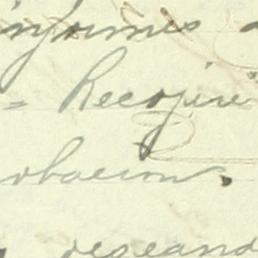 informes
= Recojire
obacion.
deseand